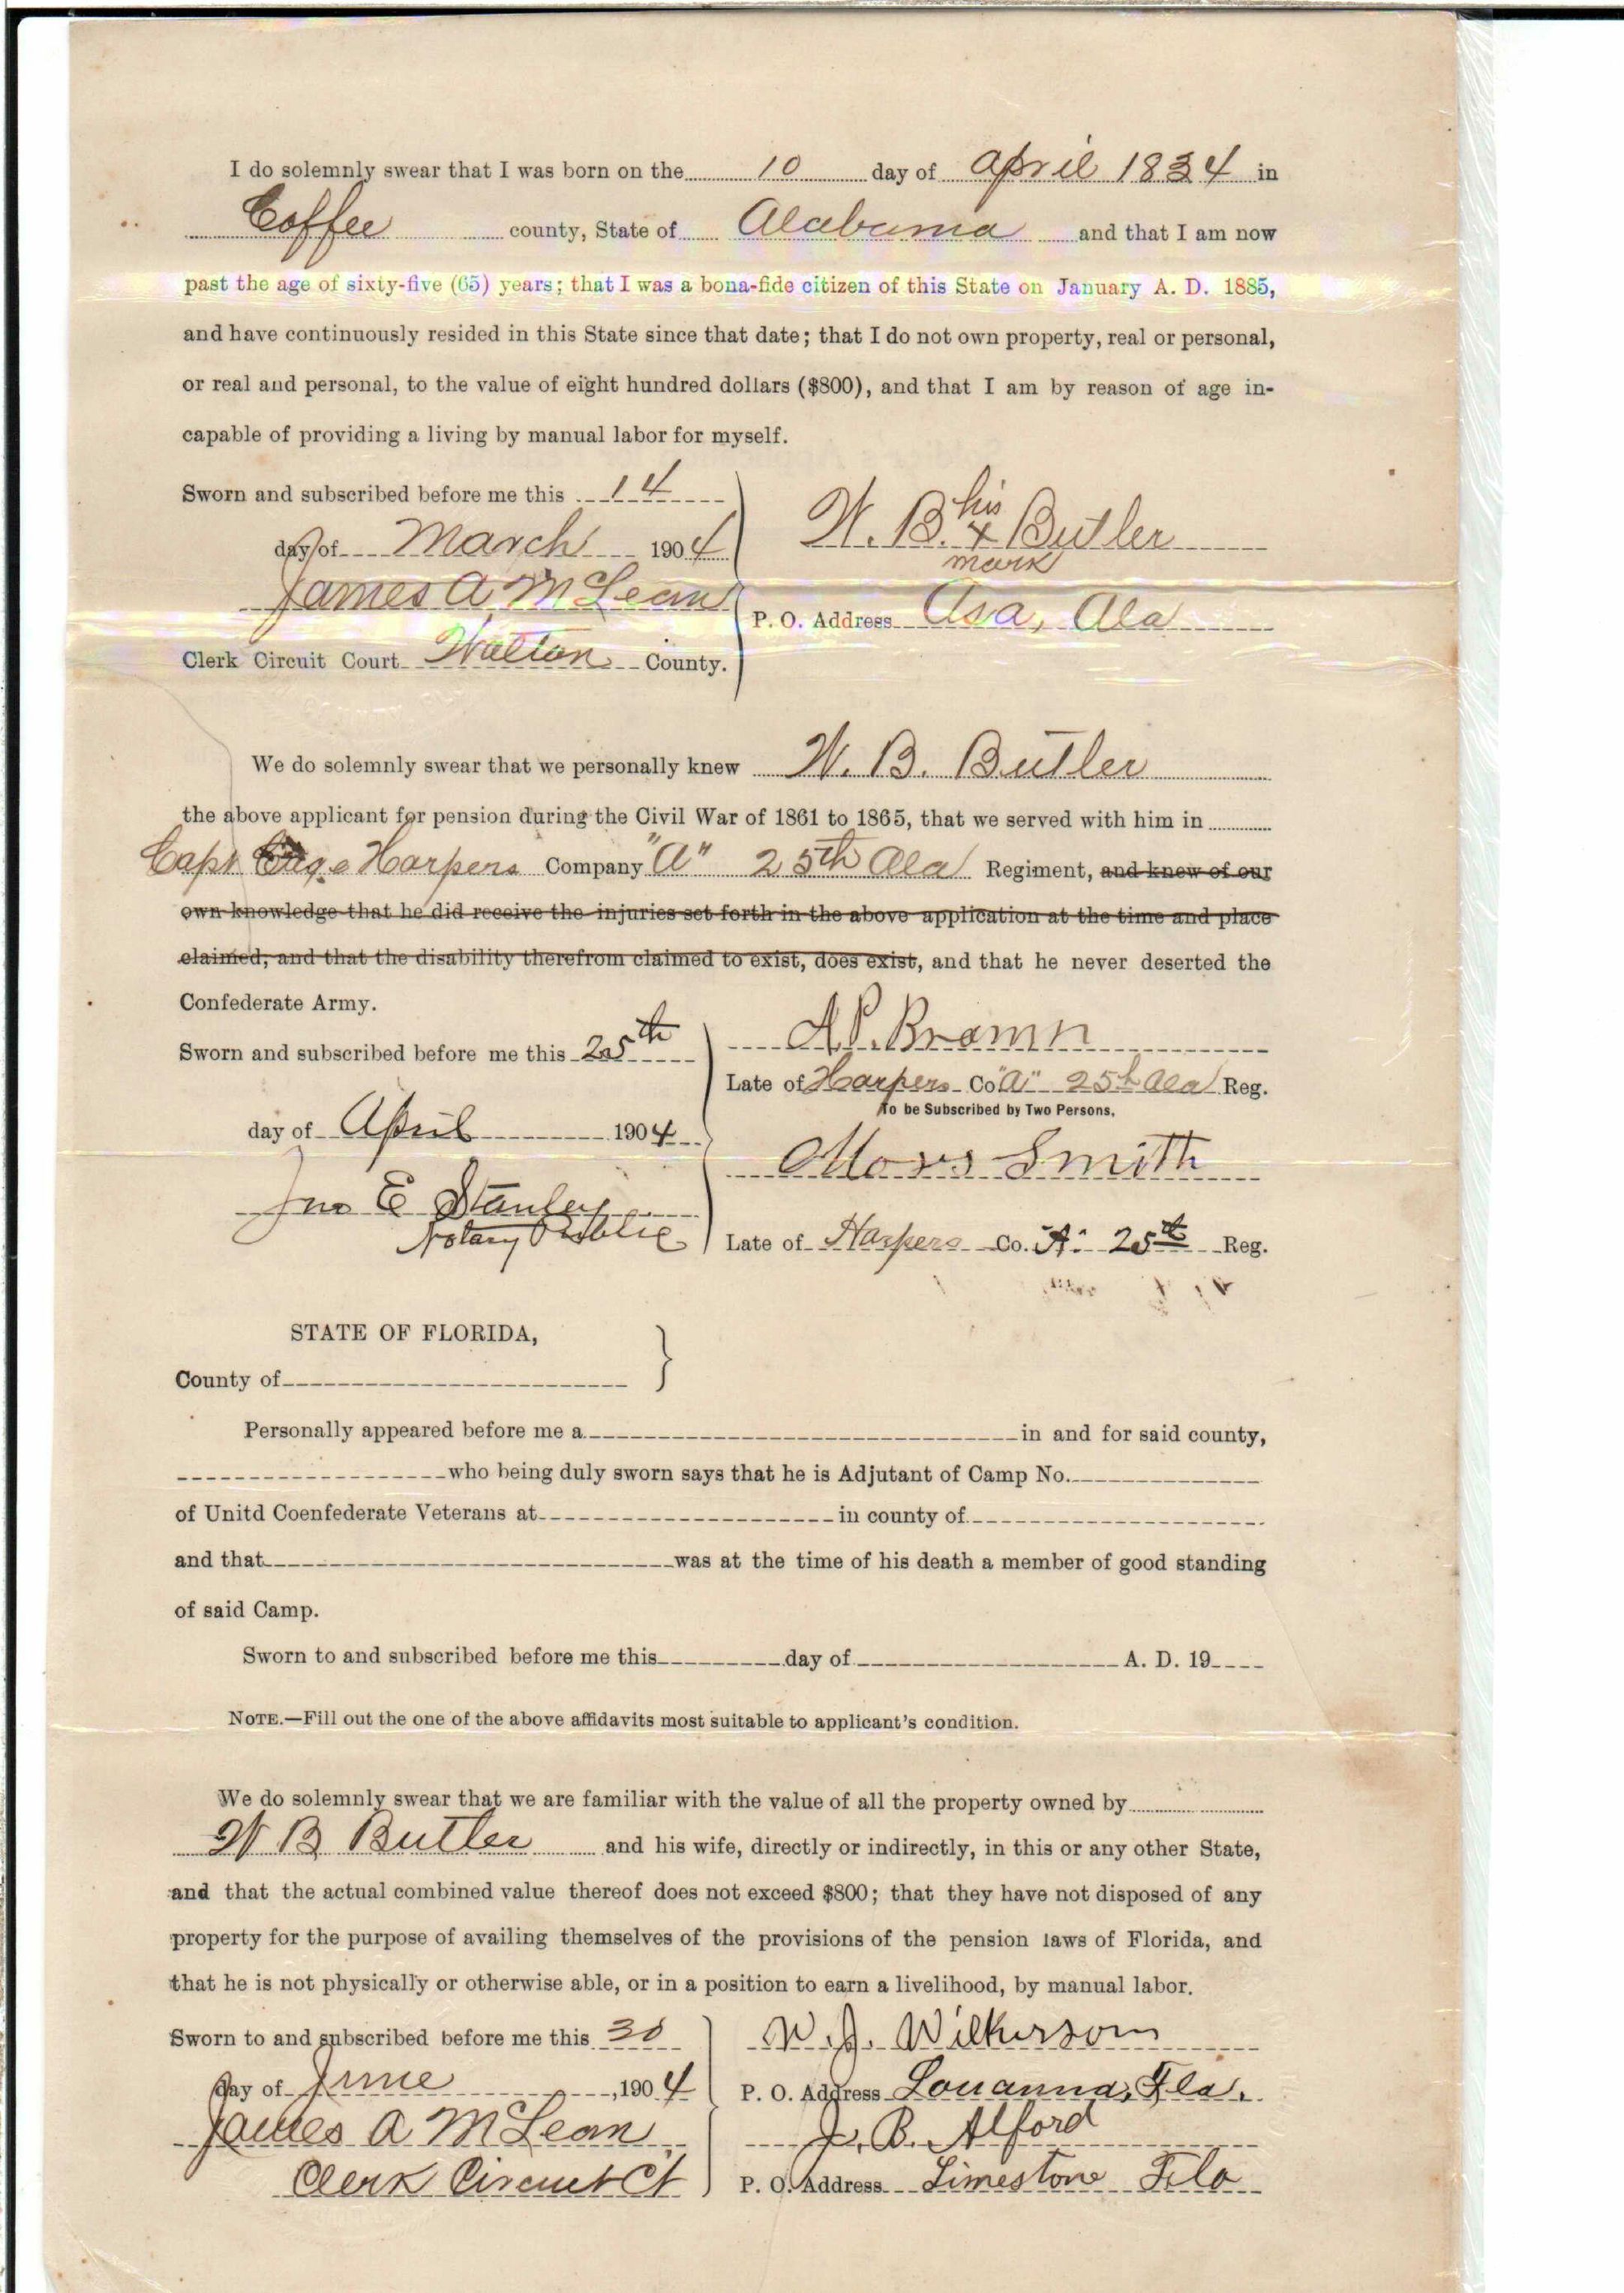 I do solemnly swear that I was born on the 10 day of April 1834 in
Coffee county, State of Alabama and that I am now
past the age of sixty-five (65) years; that I was a bona-fide citizen of this State on January A. D. 1885,
and have continuously resided in this State since that date; that I do not own property, real or personal,
or real and personal, to the value of eight hundred dollars ($800), and that I am by reason of age in-
capable of providing a living by manual labor for myself.
Sworn and subscribed before me this 14
day of March 1904
James A McLean
Clerk Circuit Court Walton County.
his
W. B. x Butler
mark
P. O. Address Asa, Ala
We do solemnly swear that we personally knew W. B. Butler
the above applicant for pension during the Civil War of 1861 to 1865, that we served with him in
Capt Harpers Company "A" 25th Ala Regiment, and knew of our
own knowledge that he did receive the injuries set forth in the above application at the time and place
claimed, and that the disability therefrom claimed to exist, does exist, and that he never deserted the
Confederate Army.
Sworn and subscribed before me this 25th
day of April 1904
Jno E Stanley
Notary Public
A.P. Brown
Late of Harpers Co "A" 25th Ala Reg.
To be Subscribed by Two Persons.
Smith
Late of Harpers Co. A. 25th Reg.
STATE OF FLORIDA,
County of
Personally appeared before me a in and for said county,
who being duly sworn says that he is Adjutant of Camp No.
of Unitd Coenfederate Veterans at in county of
and that was at the time of his death a member of good standing
of said Camp.
Sworn to and subscribed before me this day of A. D. 19
NOTE.—Fill out the one of the above affidavits most suitable to applicant's condition.
We do solemnly swear that we are familiar with the value of all the property owned by
W B Butler and his wife, directly or indirectly, in this or any other State,
and that the actual combined value thereof does not exceed $800; that they have not disposed of any
property for the purpose of availing themselves of the provisions of the pension laws of Florida, and
that he is not physically or otherwise able, or in a position to earn a livelihood, by manual labor.
Sworn to and subscribed before me this 30
day of June, 1904
James A McLean
Clerk Circuit Ct
W. J. Wilkerson
P. O. Address Louanna, Fla.
J. B. Alford
P. O. Address Limestone Fla